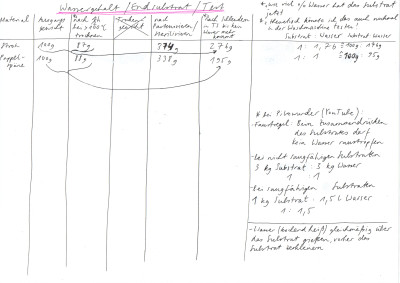 Wassergehalt / Endsubstrat / Test
Material
Ausgangs gewicht
nach 8h bei 100°C trocknen
nach Pasteurisieren/ Sterilisieren
kein Wasser mehr kommt
Stroh 100g 87g 374g 276g
Pappel- späne 100g 88g 338g 195g
* wie viel % Wasser hat das Substrat jetzt
Substrat : Wasser
1 : 1,76 ≙ 100g : 176g
1 : 1 ≙ 100g : 95g
* Bei Pilzwunder (YouTube):
- Faustregel: Beim Zusammendrücken
des Substrates darf
kein Wasser raustropfen
- bei nicht saugfähigen Substraten
3 kg Substrat : 3 kg Wasser
1 : 1
- bei saugfähigen Substraten
1 kg Substrat : 1,5 L Wasser
1 : 1,5
- Wasser (kochend heiß) gleichmäßig über
das Substrat gießen, vorher das
Substrat zerkleinern